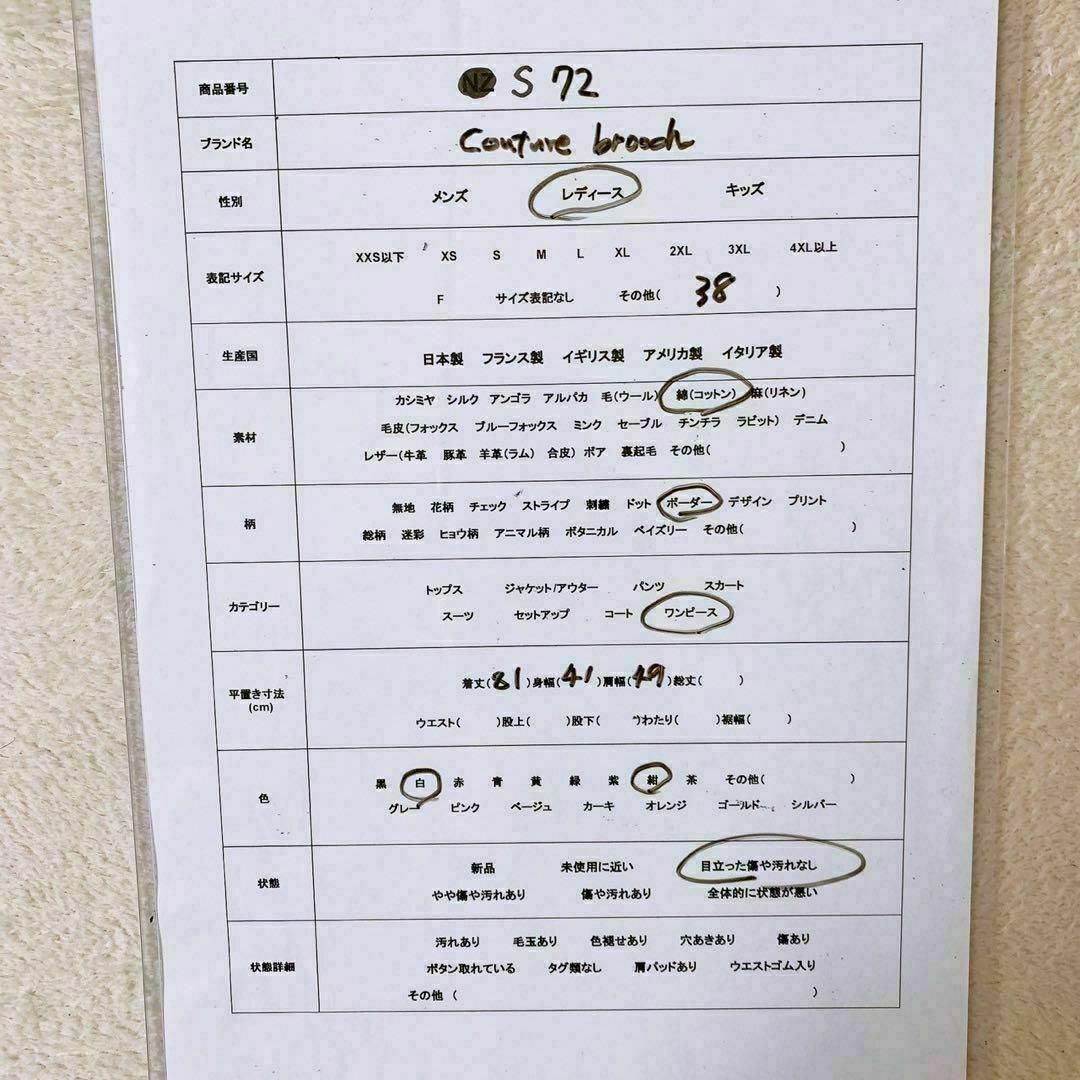 商品番号 NZ S 72
ブランド名 Couture brooch
性別 メンズ レディース キッズ
表記サイズ XXS以下 XS S M L XL 2XL 3XL 4XL以上
F サイズ表記なし その他( 38 )
生産国 日本製 フランス製 イギリス製 アメリカ製 イタリア製
素材 カシミヤ シルク アンゴラ アルパカ 毛(ウール) 綿(コットン) 麻(リネン)
毛皮(フォックス ブルーフォックス ミンク セーブル チンチラ ラビット) デニム
レザー(牛革 豚革 羊革(ラム) 合皮) ボア 裏起毛 その他( )
柄 無地 花柄 チェック ストライプ 刺繍 ドット ボーダー デザイン プリント
総柄 迷彩 ヒョウ柄 アニマル柄 ボタニカル ペイズリー その他( )
カテゴリー トップス ジャケット/アウター パンツ スカート
スーツ セットアップ コート ワンピース
平置き寸法 (cm) 着丈(81)身幅(41)肩幅(49)総丈( )
ウエスト( )股上( )股下( )わたり( )裾幅( )
色 黒 白 赤 青 黄 緑 紫 紺 茶 その他( )
グレー ピンク ベージュ カーキ オレンジ ゴールド シルバー
状態 新品 未使用に近い 目立った傷や汚れなし
やや傷や汚れあり 傷や汚れあり 全体的に状態が悪い
状態詳細 汚れあり 毛玉あり 色褪せあり 穴あきあり 傷あり
ボタン取れている タグ類なし 肩パッドあり ウエストゴム入り
その他 ( )